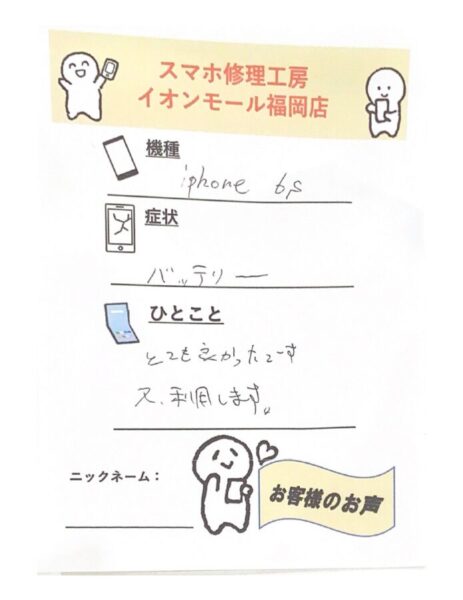 スマホ修理工房
イオンモール福岡店
機種
iphone 6s
症状
バッテリー
ひとこと
とても良かったです
又、利用します。
ニックネーム：
お客様のお声